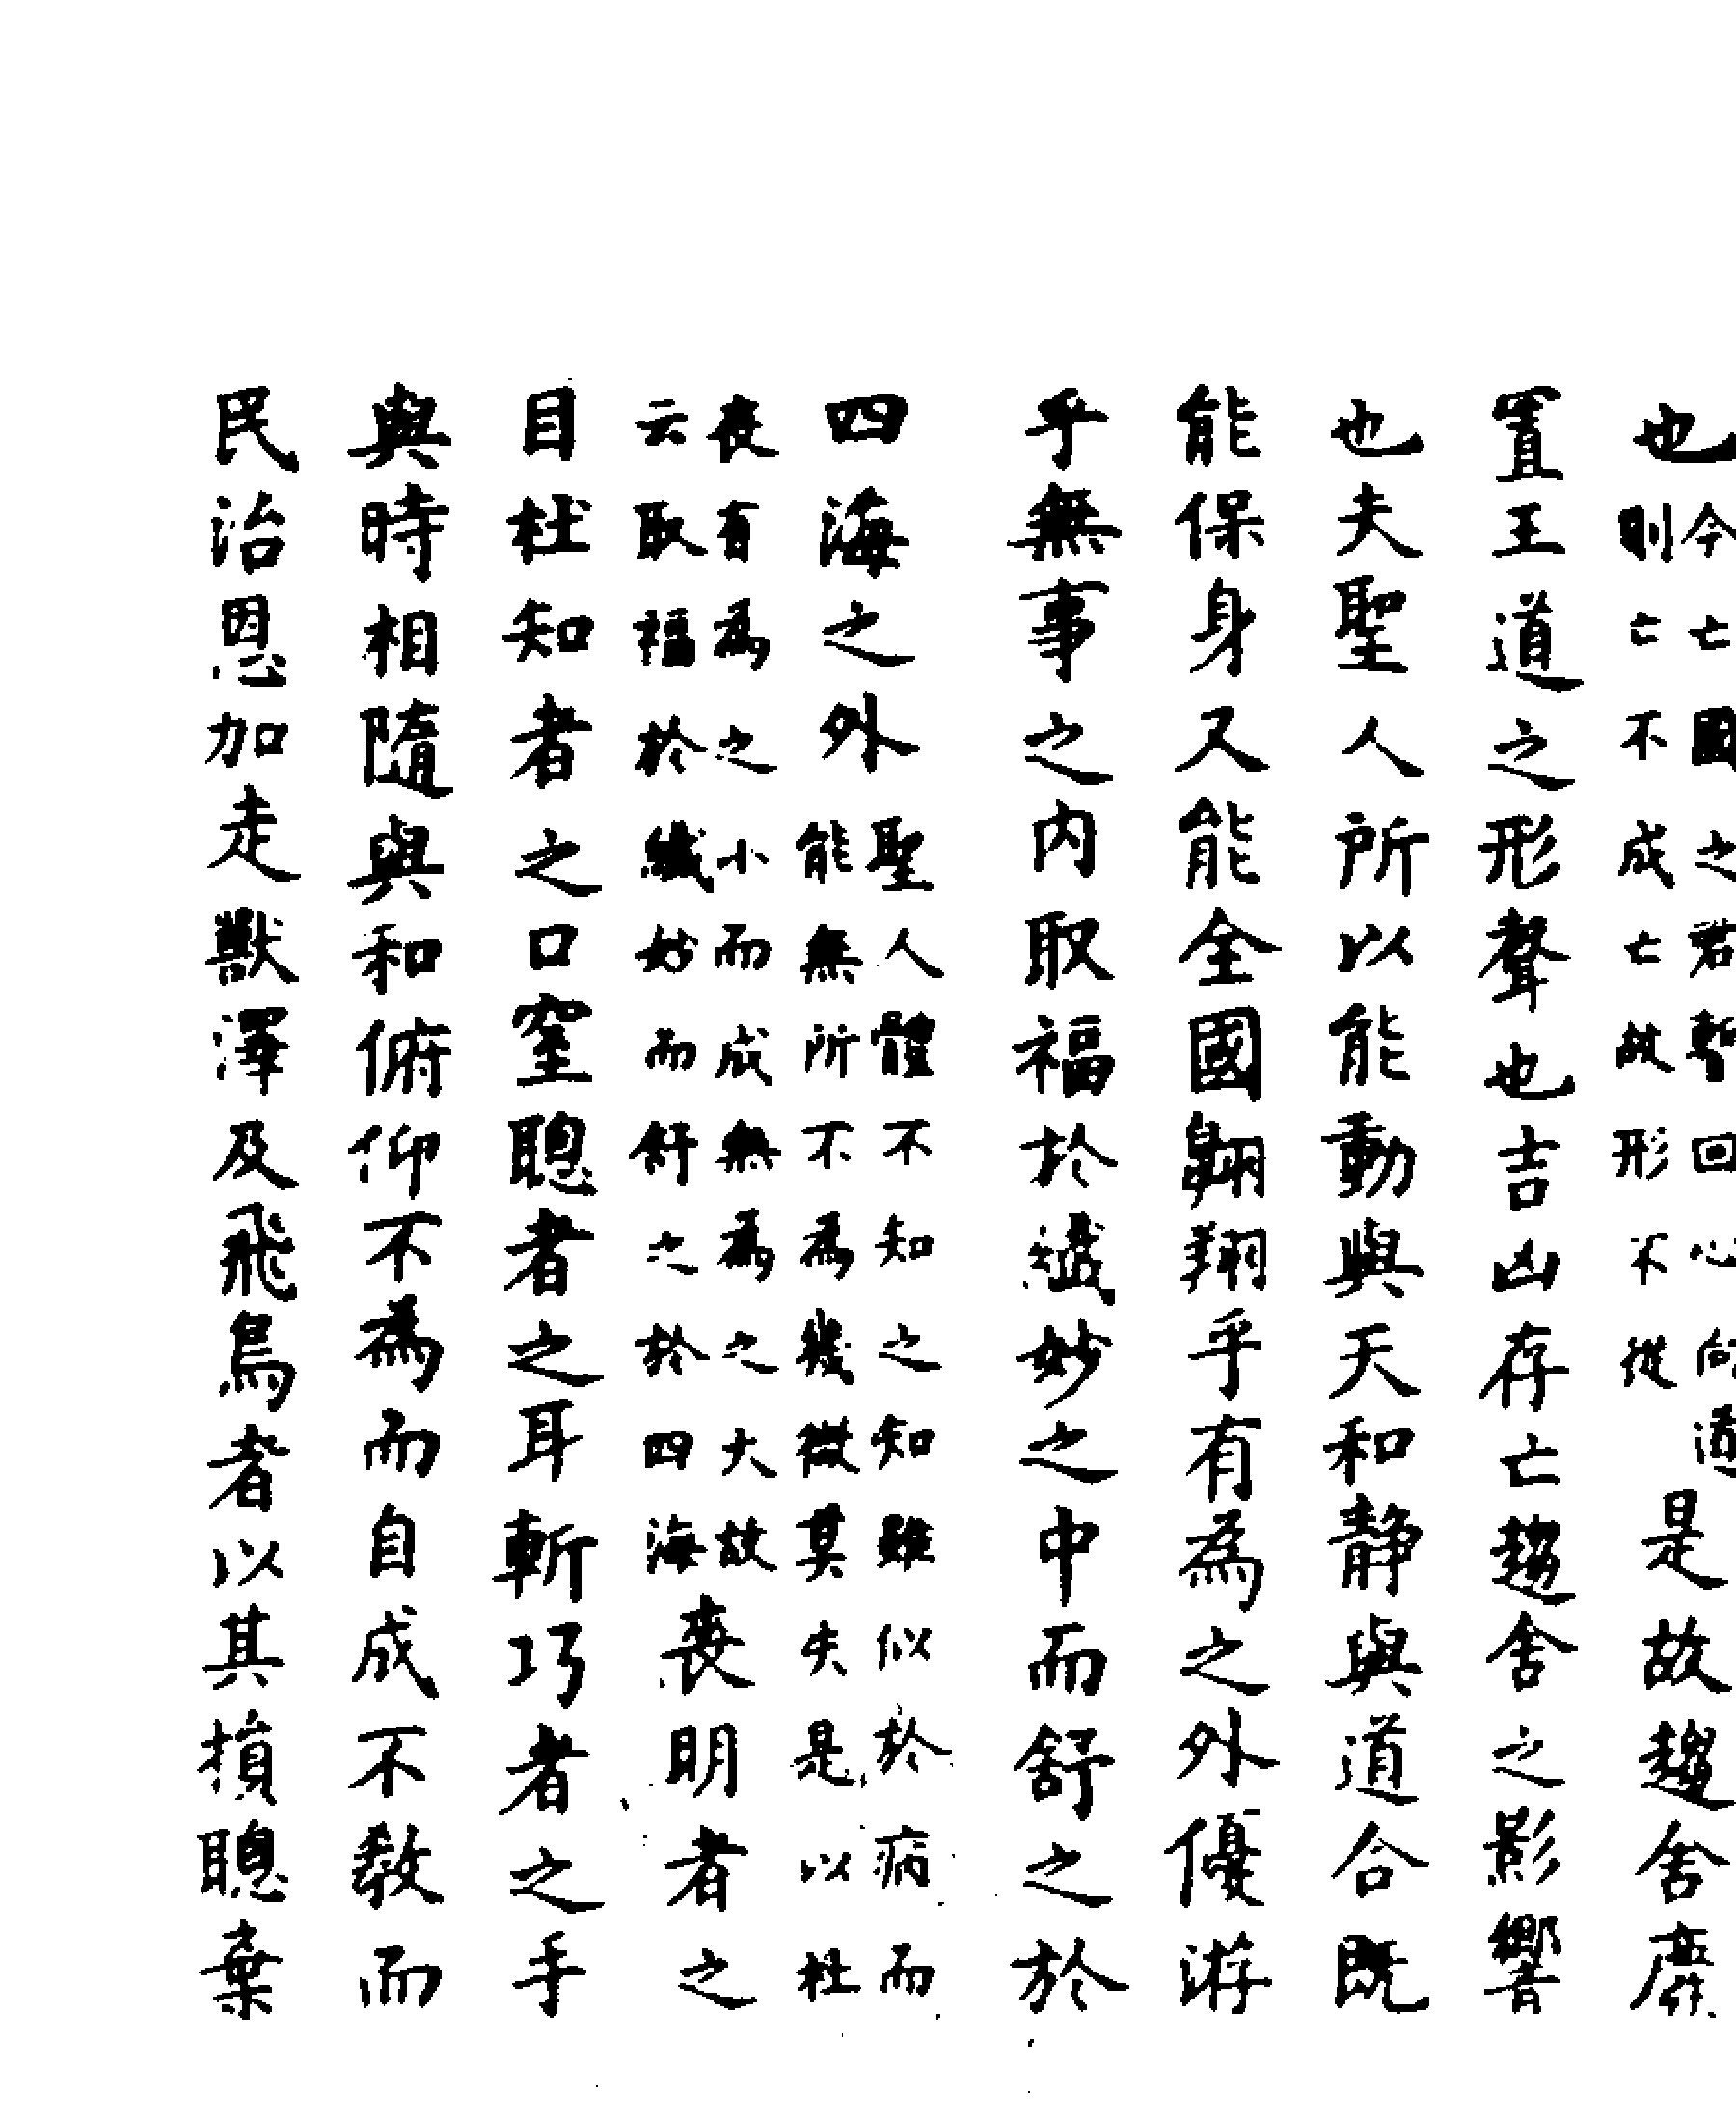 也今亡國之君暫回心向道則亡不成亡故形不從是故趨舍廢
置王道之形聲也吉凶存亡趨舍之影響
也夫聖人所以能動與天和静與道合既
能保身又能全國翺翔乎有為之外優游
乎無事之内取福於纎妙之中而舒之於
四海之外聖人體不知之知雖似於病而能無所不為幾微莫失是以杜
喪有為之小而成無為之大故云取福於纎妙而舒之於四海喪明者之
目杜知者之口窒聰者之耳斬巧者之手
與時相隨與和俯仰不為而自成不教而
民治恩加走獸澤及飛鳥者以其損聰棄